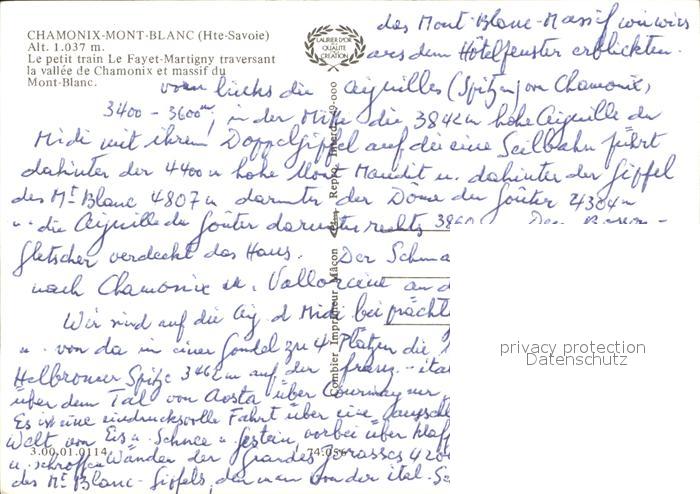 CHAMONIX-MONT-BLANC (Hte-Savoie)
Alt. 1.037 m.
Le petit train Le Fayet-Martigny traversant
la vallée de Chamonix et massif du
Mont-Blanc.
LAURIER D'OR
DE LA
QUALITÉ
CRÉATION
das Mont-Blanc-Massif wie wir's
aus dem Hôtelfenster erblickten.
vorn links die Aiguilles (Spitzen) von Chamonix,
3400 - 3600m, in der Mitte die 3842m hohe Aiguille du
Midi mit ihrem Doppelgipfel auf die eine Seilbahn führt
dahinter der 4400 m hohe Mont Maudit u. dahinter der Gipfel
des Mt Blanc 4807 m darunter der Dôme du Goûter 4304 m
u. die Aiguille du Goûter darunter rechts
gletscher verdeckt das Haus. Der
nach Chamonix u. Vallorcine
Wir sind auf die Aig. d Midi bei
u. von da in einer Gondel zu 4 Plätzen die
Helbronner Spitze 3462m auf der franz. - ita
über dem Tal von Aosta über Courmayeur
Es ist eine eindrucksvolle Fahrt über eine
Welt von Eis u. Schnee u. Gestein, vorbei über
u. schroffen Wänden der Grandes Jorasses 420
des Mt Blanc-Gipfels, den man von der ital.
Combier Imprimeur Mâcon
Repro. Interd.
3.00.01.0114
privacy protection
Datenschutz